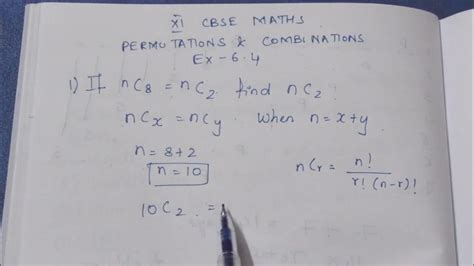 XI CBSE MATHS
PERMUTATIONS & COMBINATIONS
Ex - 6.4
1) If nC8 = nC2 find nC2.
nCx = nCy when n = x+y.
n = 8+2
n = 10
nCr = n! / r! (n-r)!
10C2 =